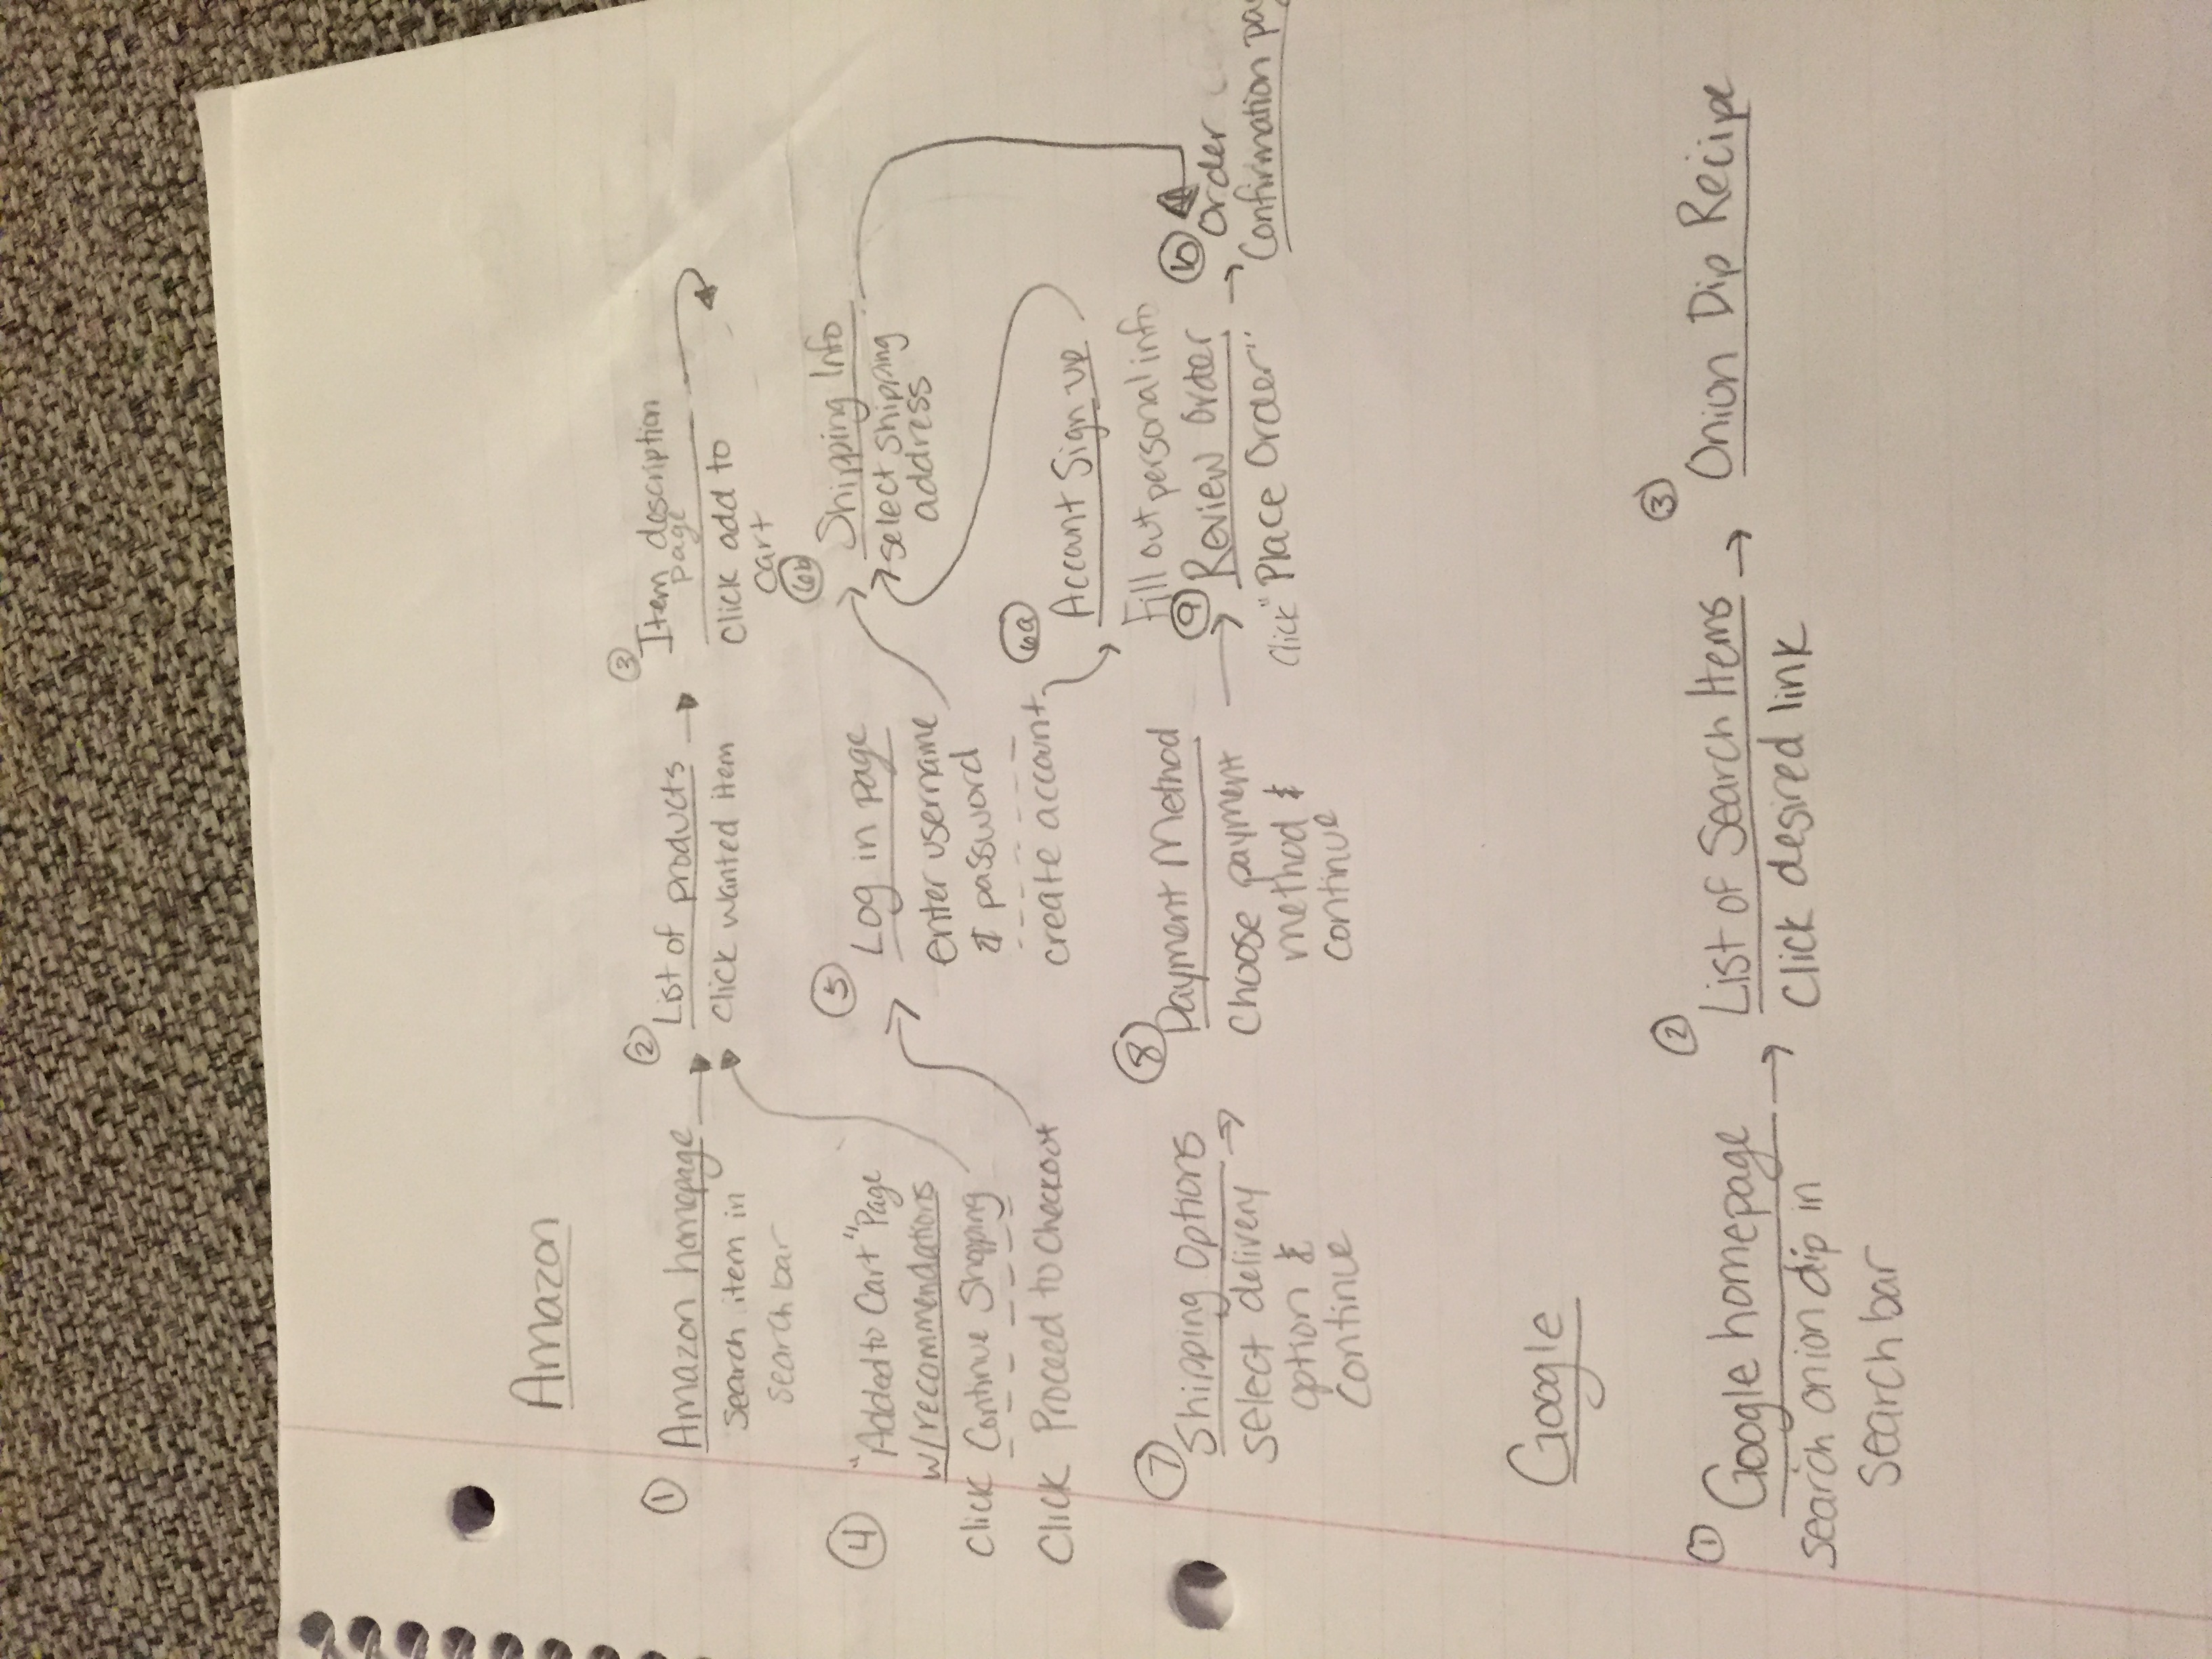 Amazon
① Amazon homepage
search item in
search bar
② List of products
click wanted item
③ Item description
page
click add to
cart
④ "Added to Cart" Page
w/recommendations
Click Continue Shopping
Click Proceed to Checkout
⑤ Log in page
enter username
& password
create account
6b Shipping Info
select shipping
address
6a Account Sign up
Fill out personal info
⑦ Shipping Options
select delivery
option &
continue
⑧ Payment Method
choose payment
method &
continue
⑨ Review Order
click "Place Order"
⑩ Order
Confirmation
Google
① Google homepage
search onion dip in
search bar
② List of Search Items
click desired link
③ Onion Dip Recipe